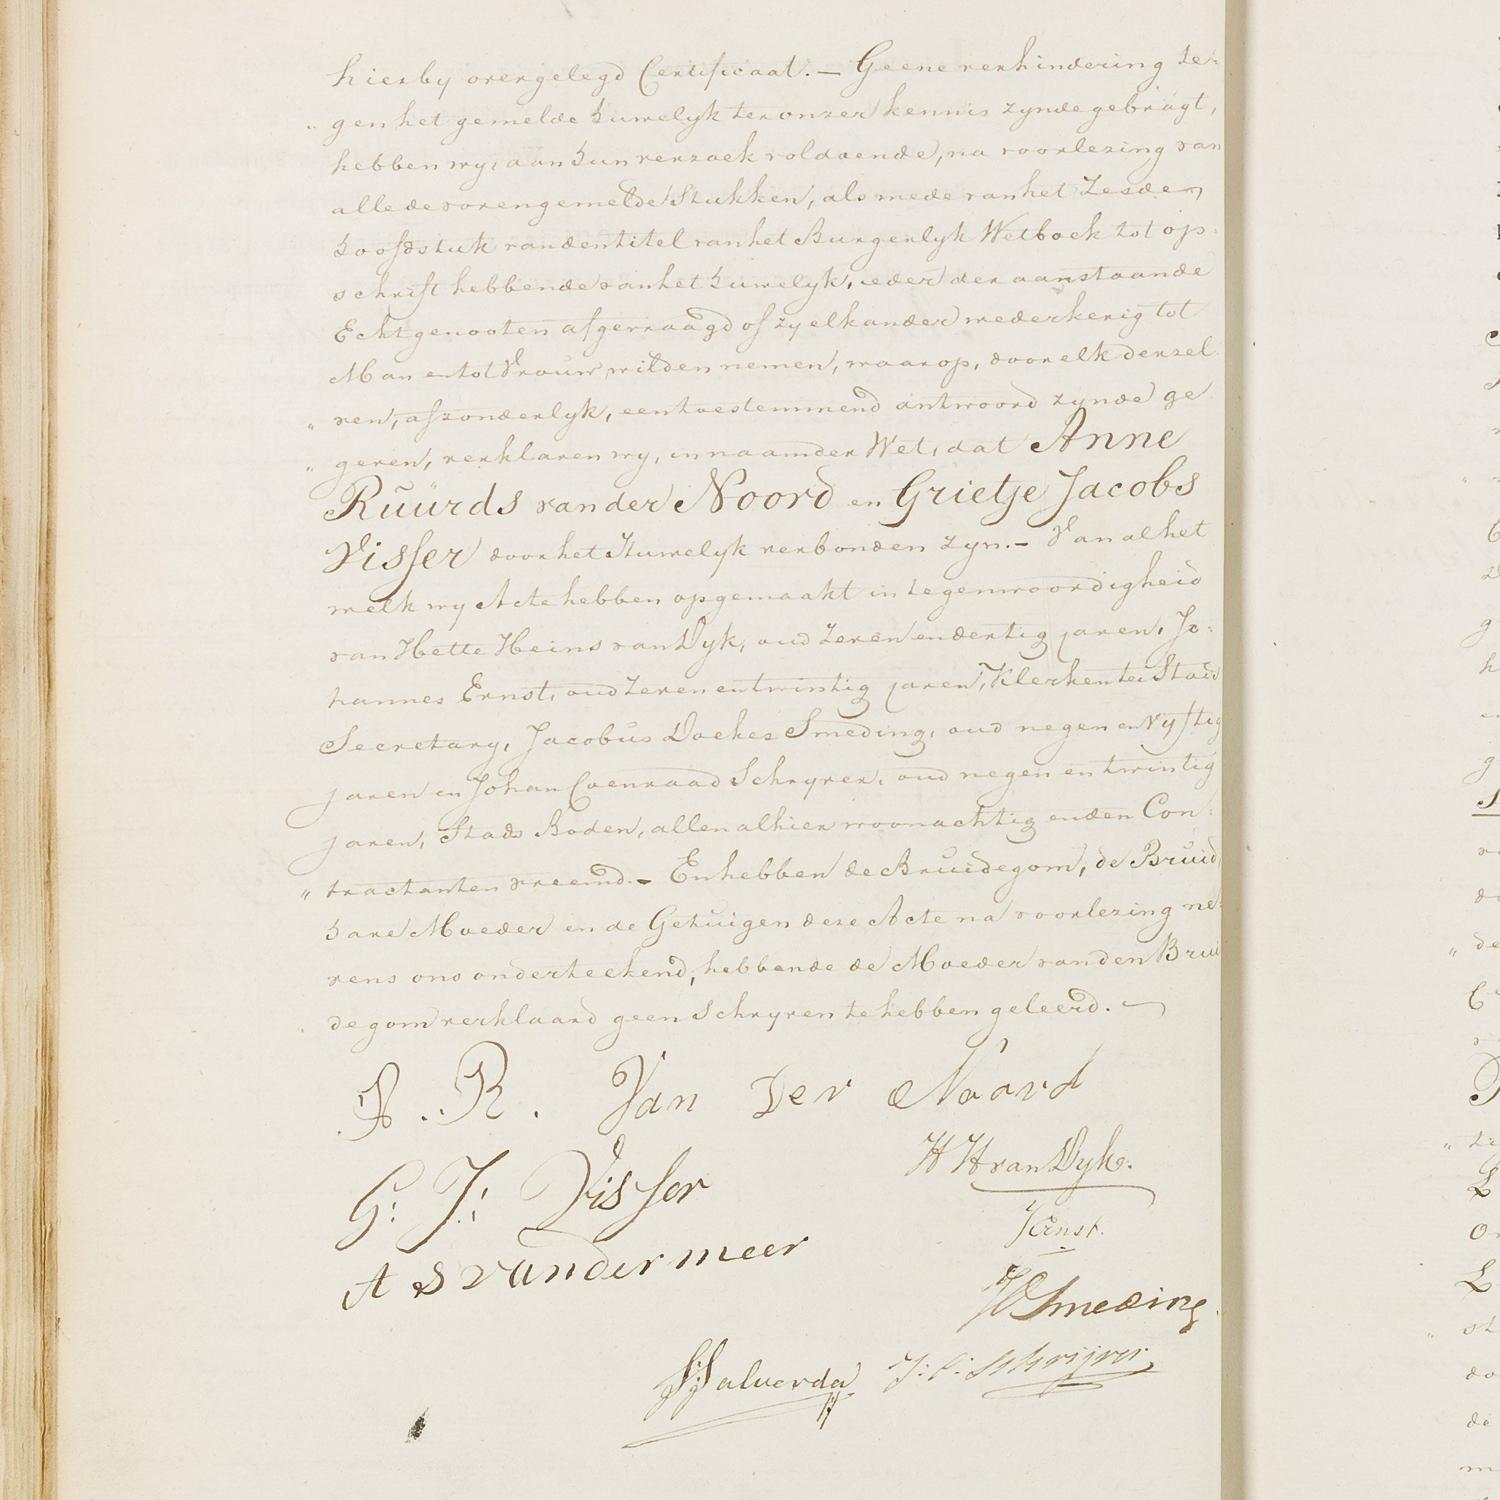 hierby overgelegd Certificaat. — Geene verhindering te-
„ gen het gemelde huwelyk ter onzer kennis zynde gebragt,
hebben wy, aan hun verzoek voldoende, na voorlezing van
alle de vorengemelde Stukken, als mede van het Zesde
hoofdstuk van den titel van het Burgerlyk Wetboek tot op-
schrift hebbende van het huwelyk, ieder der aanstaande
Echtgenooten afgevraagd of zy elkander wederkerig tot
Man en tot Vrouw wilden nemen, waarop, door elk derzel
„ ven, afzonderlyk, een toestemmend antwoord zynde ge
„ geven, verklaren wy, in naam der Wet, dat Anne
Ruürds van der Noord en Grietje Jacobs
Visser door het Huwelyk verbonden zyn. — Van al het
welk wy Acte hebben opgemaakt in tegenwoordigheid
van Hette Heins van Dyk, oud zeven en dertig jaren, Jo-
hannes Ernst, oud zeven en twintig jaren, Klerken ter Stads
Secretary, Jacobus Doekes Smeding, oud negen en Vyftig
jaren en Johan Coenraad Schryver, oud negen en twintig
jaren, Stads Boden, allen alhier woonachtig en den Con-
„ tractanten vreemd. — En hebben de Bruidegom, de Bruid
hare Moeder en de Getuigen deze Acte na voorlezing ne-
vens ons onderteekend, hebbende de Moeder van den Brui
degom verklaard geen Schryven te hebben geleerd. —
A. R. Van Der Noord
H H van Dyk.
G: J: Visser
J Ernst.
A S vander meer
JD Smeding.
J: C: Schrijver
Salverda